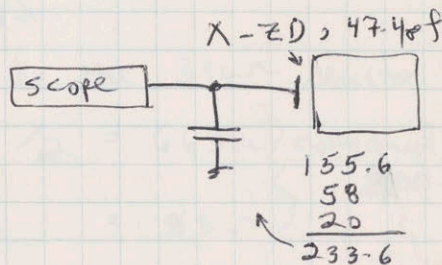 X-ZD, 47.48f
scope
155.6
58
20
233.6